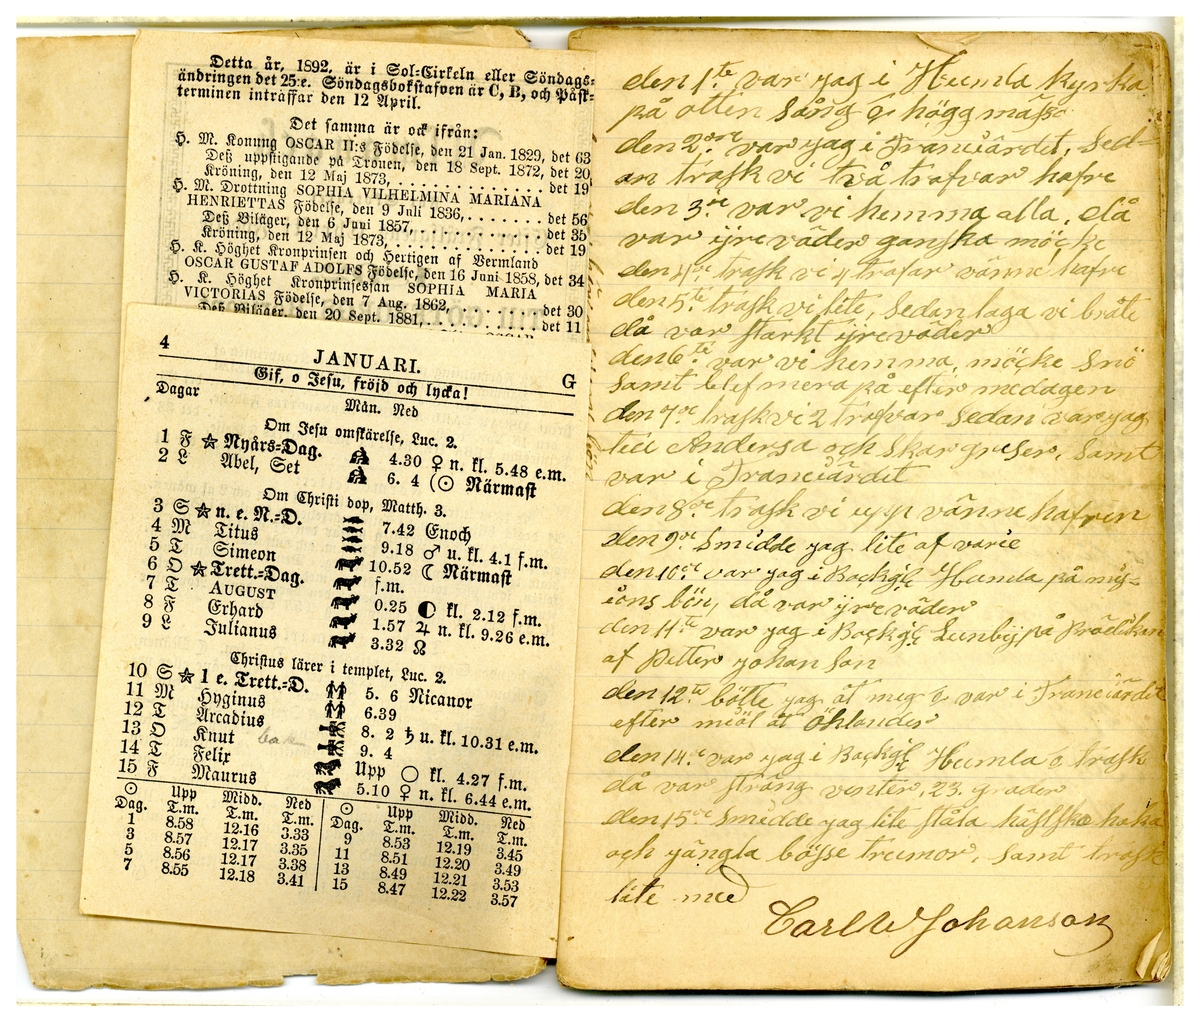 Detta år, 1892, är i Sol-Cirkeln eller Söndags-
ändringen det 25:e. Söndagsbokstafven är C, B, och Påsk-
terminen inträffar den 12 April.
Det samma är ock ifrån:
H. M. Konung OSCAR II:s Födelse, den 21 Jan. 1829, det 63
Deß uppstigande på Tronen, den 18 Sept. 1872, det 20
Kröning, den 12 Maj 1873, . . . . . . . . . . . . . . det 19
H. M. Drottning SOPHIA VILHELMINA MARIANA
HENRIETTAS Födelse, den 9 Juli 1836, . . . . . . . det 56
Deß Biläger, den 6 Juni 1857, . . . . . . . . . . . det 35
Kröning, den 12 Maj 1873, . . . . . . . . . . . . . det 19
H. K. Höghet Kronprinsen och Hertigen af Vermland
OSCAR GUSTAF ADOLFS Födelse, den 16 Juni 1858, det 34
H. K. Höghet Kronprinsessan SOPHIA MARIA
VICTORIAS Födelse, den 7 Aug. 1862, . . . . . . . det 30
Deß Biläger, den 20 Sept. 1881, . . . . . . . . . det 11
4 JANUARI. G
Gif, o Jesu, fröjd och lycka!
Dagar Mån. Ned
Om Jesu omskärelse, Luc. 2.
1 F ☆ Nyårs-Dag. 4.30 ♀ n. kl. 5.48 e.m.
2 L Abel, Set 6. 4 (☉ Närmast
Om Christi dop, Matth. 3.
3 S ☆ n. e. N.-D. 7.42 Enoch
4 M Titus 9.18 ♂ u. kl. 4.1 f.m.
5 T Simeon 10.52 ☾ Närmast
6 O ☆ Trett.-Dag. f.m.
7 T AUGUST 0.25 ◐ kl. 2.12 f.m.
8 F Erhard 1.57 ♃ n. kl. 9.26 e.m.
9 L Julianus 3.32 ☊
Christus lärer i templet, Luc. 2.
10 S ☆ 1 e. Trett.-D. 5. 6 Nicanor
11 M Hyginus 6.39
12 T Arcadius 8. 2 ♄ u. kl. 10.31 e.m.
13 O Knut 9. 4
14 T Felix Upp ○ kl. 4.27 f.m.
15 F Maurus 5.10 ♀ n. kl. 6.44 e.m.
☉ Upp Midd. Ned ☉ Upp Midd. Ned
Dag. T.m. T.m. T.m. Dag. T.m. T.m. T.m.
1 8.58 12.16 3.33 9 8.53 12.19 3.45
3 8.57 12.17 3.35 11 8.51 12.20 3.49
5 8.56 12.17 3.38 13 8.49 12.21 3.53
7 8.55 12.18 3.41 15 8.47 12.22 3.57
den 1.te var jag i Humla kyrka
på otten sång & högg mässa
den 2.are var jag i Tranciärdet, Sed-
an trask vi två trafvar hafre
den 3.ie var vi hemma alla, då
var ijreväder ganska möcke
den 4.de trask vi 4 trafar vänne hafre
den 5.te trask vi lite, sedan laga vi bråte
då var starkt ijreväder
den 6.te var vi hemma, möcke snö
samt blef mera på efter medagen
den 7.de trask vi 2 trafvar Sedan var jag
till Andersa och skar guser, Samt
var i Tranciärdet
den 8.de trask vi upp vänne hafren
den 9.de Smidde jag lite af varie
den 10.de var jag i Backgl Humla på mis-
ions bön, då var ijreväder
den 11.te var jag i Backgl Lunbij på Prädikan
af Petter Johanson
den 12.te bötte jag åt mig & var i Tranciärdet
efter miöl åt Öhlander
den 14.de var jag i Backgl Humla & trask
då var sträng venter, 23. grader
den 15.de Smidde jag lite ståta hässka haka
och gängla bösse tremor, samt trask
lite med
Carl W Johanson